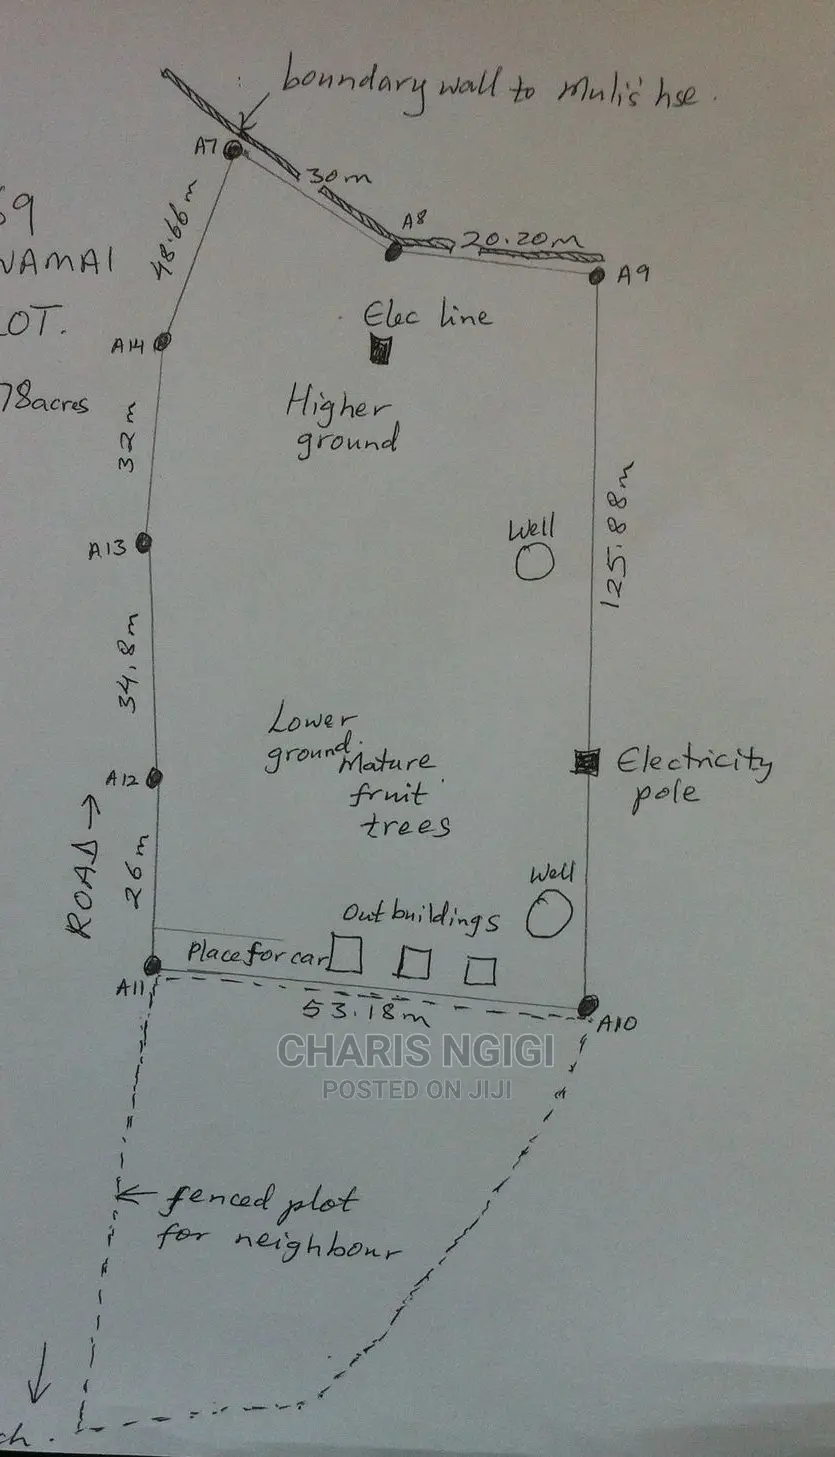 boundary wall to Muli's hse.
A7
30m
A8
20.20m
A9
69
48.66m
NAMAI
LOT.
Elec line
A14
78acres
Higher
ground
32m
125.88m
Well
A13
34.8m
Lower
ground.
Mature
fruit
trees
A12
Electricity
pole
ROAD →
26m
Well
Out buildings
Place for car
A11
53.18m
A10
CHARIS NGIGI
POSTED ON JIJI
← fenced plot
for neighbour
ch.